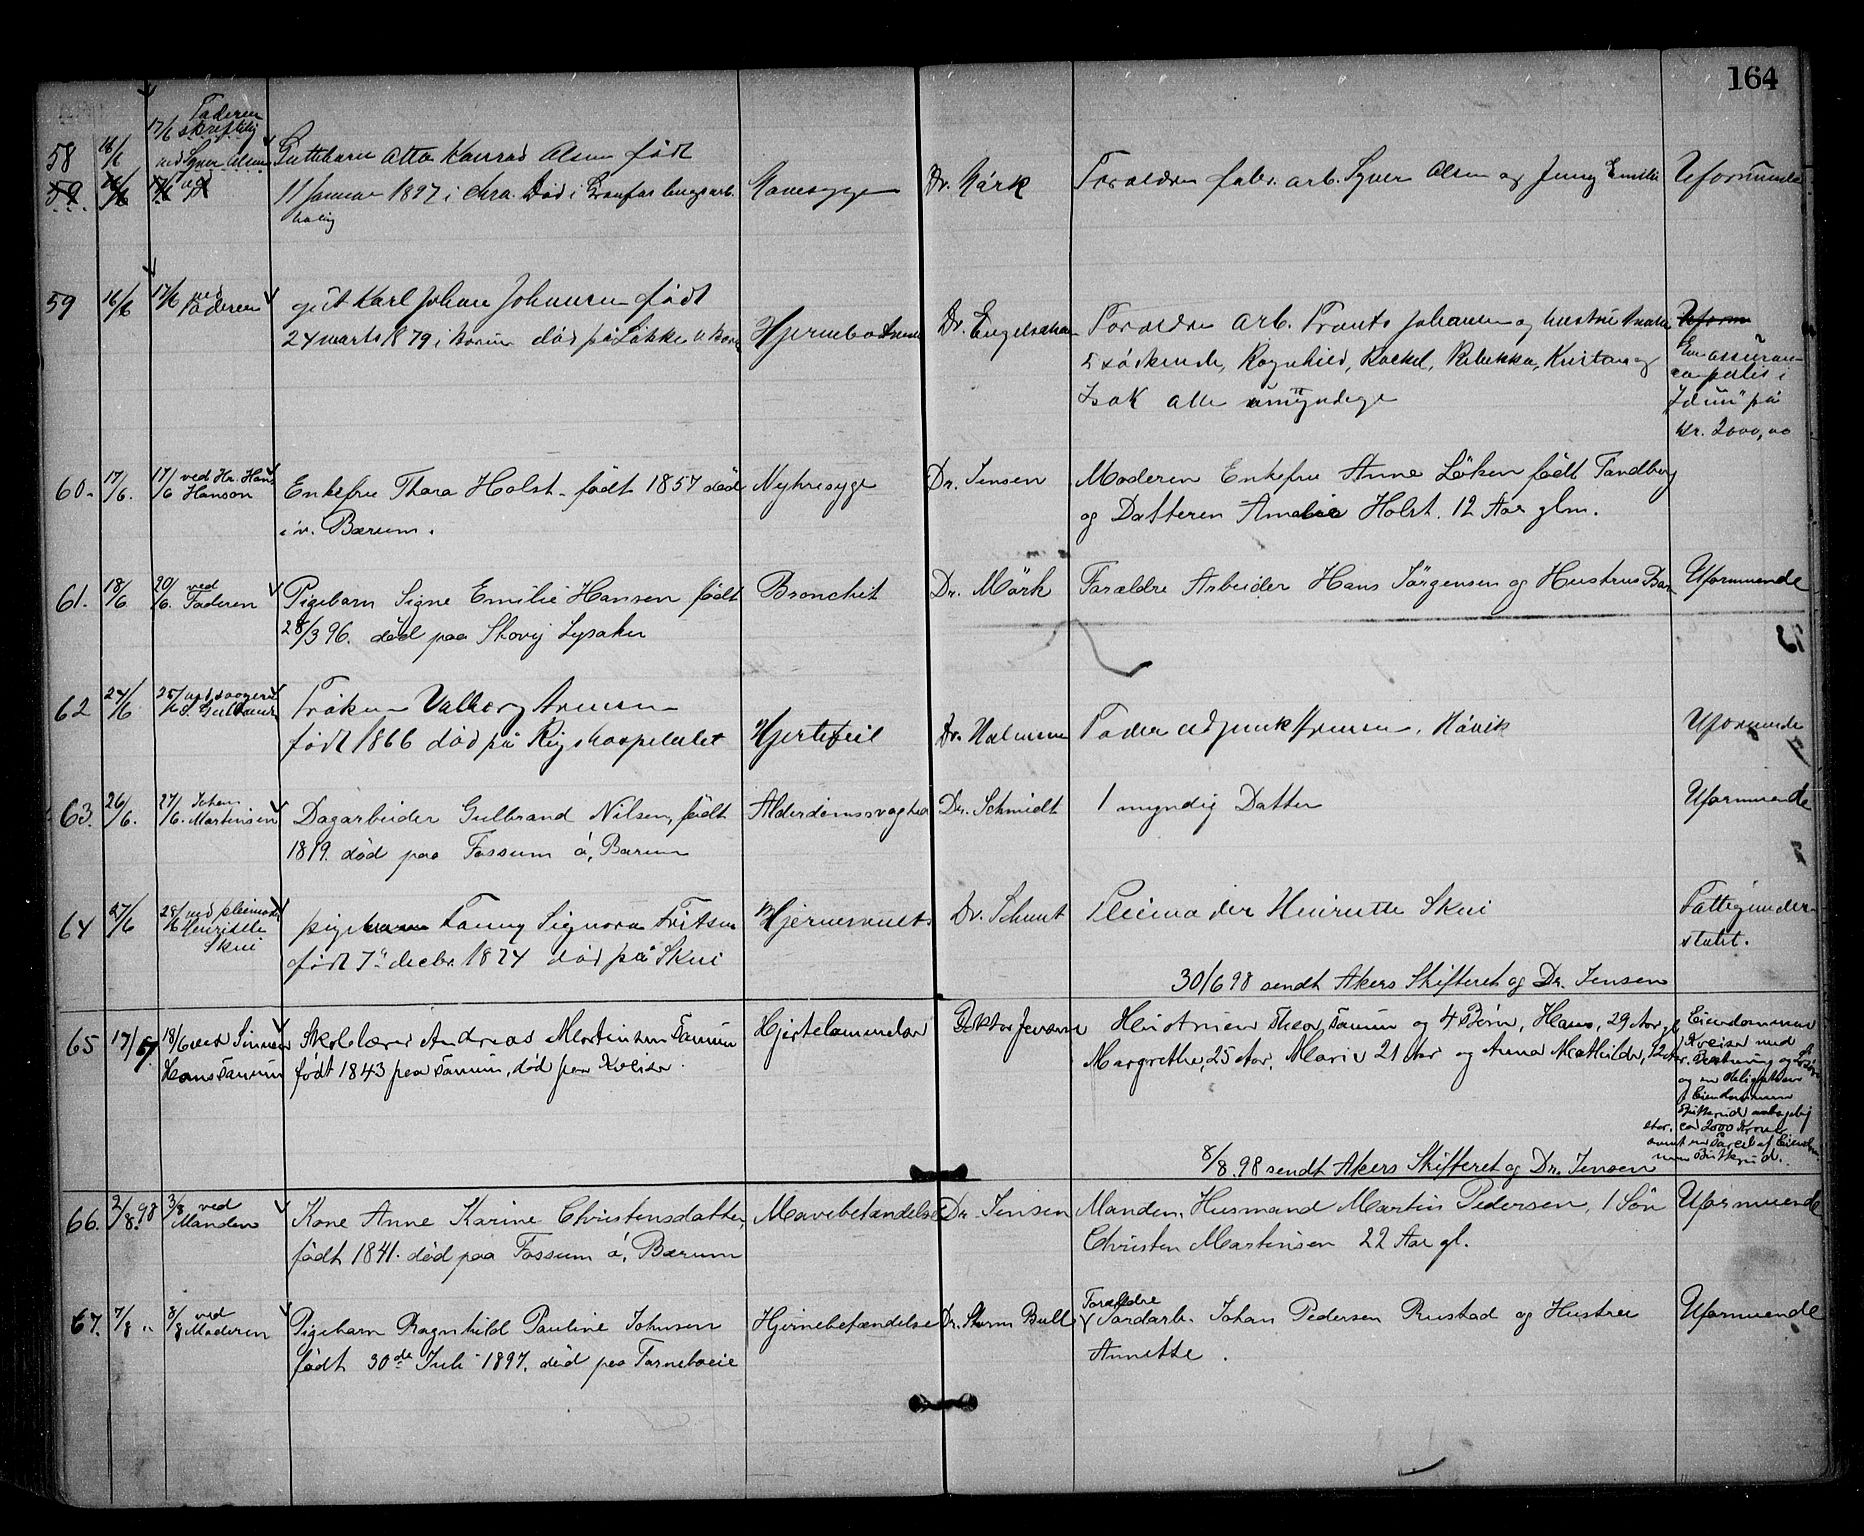 164
58 16/6 17/6 Faderen skriftlig
ved Syver Olsen Guttebarn Otto Konrad Olsen født
11 Januar 1897 i Chra. Død i Granfos brugs arb.
bolig
Mavesyge Dr. Mørk Forældre fabr. arb. Syver Olsen og Jenny Emilie Uformuende
59 16/6 17/6 ved Faderen gut Karl Johan Johansen født
24 marts 1879 i Bærum død på Løkke V. Bærum
Dr. Engelschøn Forældre Arb. Frants Johansen og hustru
5 sødskende, Ragnhild, Rachel, Rebekka, Kristian og
Isak alle umyndige
Uform
En assuran-
ce polis i
"Idun" på
kr. 2000,00
60. 17/6. 17/6 ved Hr. Hans
Hanson
Enkefru Thora Holst født 1857 død
i v. Bærum.
Nyresyge Dr. Jensen Moderen Enkefru Anne Løken født Tandberg
og Datteren Amalie Holst. 12 Aar glm.
61. 18/6 20/6. ved
Faderen
Pigebarn Signe Emilie Hansen født
28/3 96. død paa Skovej Lysaker
Bronchit Dr. Mörk Forældre Arbeider Hans Jörgensen og Hustru Uformuende
62 24/6 25/6 ved
Frøken Valborg Arnesen
født 1866 død på Rigshospitalet
Hjertefeil Dr. Fader adjunkt Arnesen, Høvik Uformuende
63. 26/6. 27/6. Johan
Martinsen
Dagarbeider Gulbrand Nilsen, født
1819. død paa Fossum ö, Bærum
Alderdomssvaghed Dr. Schmidt 1 myndig Datter Uformuende
64 27/6 28/6 ved pleimoder
Henriette
Skui
pigebarn Fanny Signora Fritsen
født 7de decbr. 1874 død på Skui
Dr. Schmidt Pleiemoder Henriette Skui Fattigunder-
støtet.
30/6 98 sendt Akers Skifteret og Dr. Jensen
65 17/7 18/7 ved Sønnen
Hans Tanum
Skolelærer Andreas Martinsen Tanum
født 1843 paa Tanum, død paa Kveise.
Hjertelammelse Doktor Jensen Hustruen Theor. Tanum og 4 Børn, Hans, 29 Aar gl.
Margrethe, 25 Aar, Marie 21 Aar og Anna Mathilde, 12 Aar.
Eiendommen
Kveise med
Besætning og
og en Obligation
i Eiendommen
ca 2000 Kroner
samt en Parcel af Eiendom-
men
8/8. 98 sendt Akers Skifteret og Dr. Jensen
66. 2/8 98 3/8 ved
Manden
Kone Anne Karine Christensdatter
født 1841. død paa Fossum ö, Bærum
Mavebetændelse Dr. Jensen Manden, Husmand Martin Pedersen, 1 Søn
Christen Martinsen 22 Aar gl.
Uformuende
67. 7/8 " 8/8 ved
Moderen
Pigebarn Ragnhild Pauline Johnsen
født 30de Juli 1897. død paa
Hjernebetændelse Dr. Storm Bull Forældre
Jordarb. Johan Pedersen Rustad og Hustru
Annette.
Uformuende